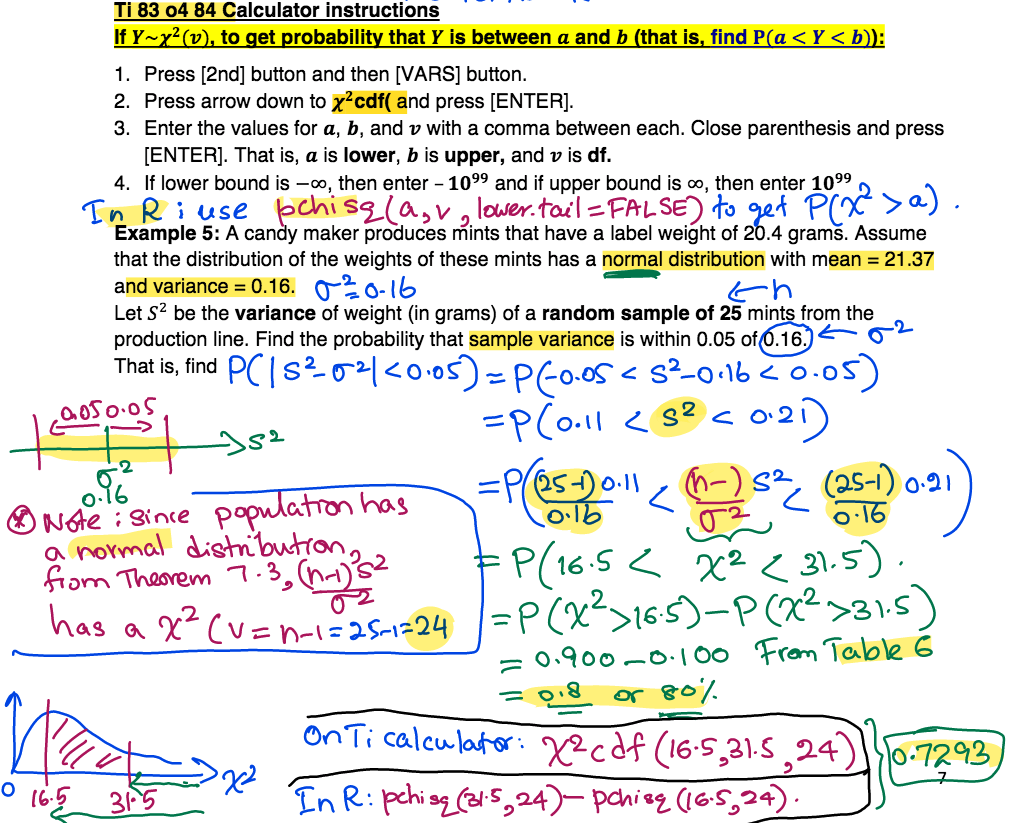 Ti 83 o4 84 Calculator instructions
If Y~χ²(v), to get probability that Y is between a and b (that is, find P(a < Y < b)):
1. Press [2nd] button and then [VARS] button.
2. Press arrow down to χ²cdf( and press [ENTER].
3. Enter the values for a, b, and v with a comma between each. Close parenthesis and press
[ENTER]. That is, a is lower, b is upper, and v is df.
4. If lower bound is −∞, then enter − 10⁹⁹ and if upper bound is ∞, then enter 10⁹⁹
In R: use pchisq(a,v, lower.tail=FALSE) to get P(χ²>a).
Example 5: A candy maker produces mints that have a label weight of 20.4 grams. Assume
that the distribution of the weights of these mints has a normal distribution with mean = 21.37
and variance = 0.16. σ²=0.16 ←n
Let S² be the variance of weight (in grams) of a random sample of 25 mints from the
production line. Find the probability that sample variance is within 0.05 of 0.16. ← σ²
That is, find P(|S²-σ²|<0.05) = P(-0.05 < S²-0.16 < 0.05)
= P(0.11 < S² < 0.21)
0.05 0.05
→S²
σ²
0.16
= P((25-1)0.11/0.16 < (n-1)S²/σ² < (25-1)0.21/0.16)
= P(16.5 < χ² < 31.5).
= P(χ²>16.5) - P(χ²>31.5)
= 0.900 - 0.100 From Table 6
= 0.8 or 80%
* Note: Since population has
a normal distribution,
from Theorem 7.3, (n-1)S²/σ²
has a χ² (v=n-1=25-1=24
0 16.5 31.5 χ²
On Ti calculator: χ²cdf(16.5,31.5,24)
In R: pchisq(31.5,24)- pchisq(16.5,24).
0.7293
7